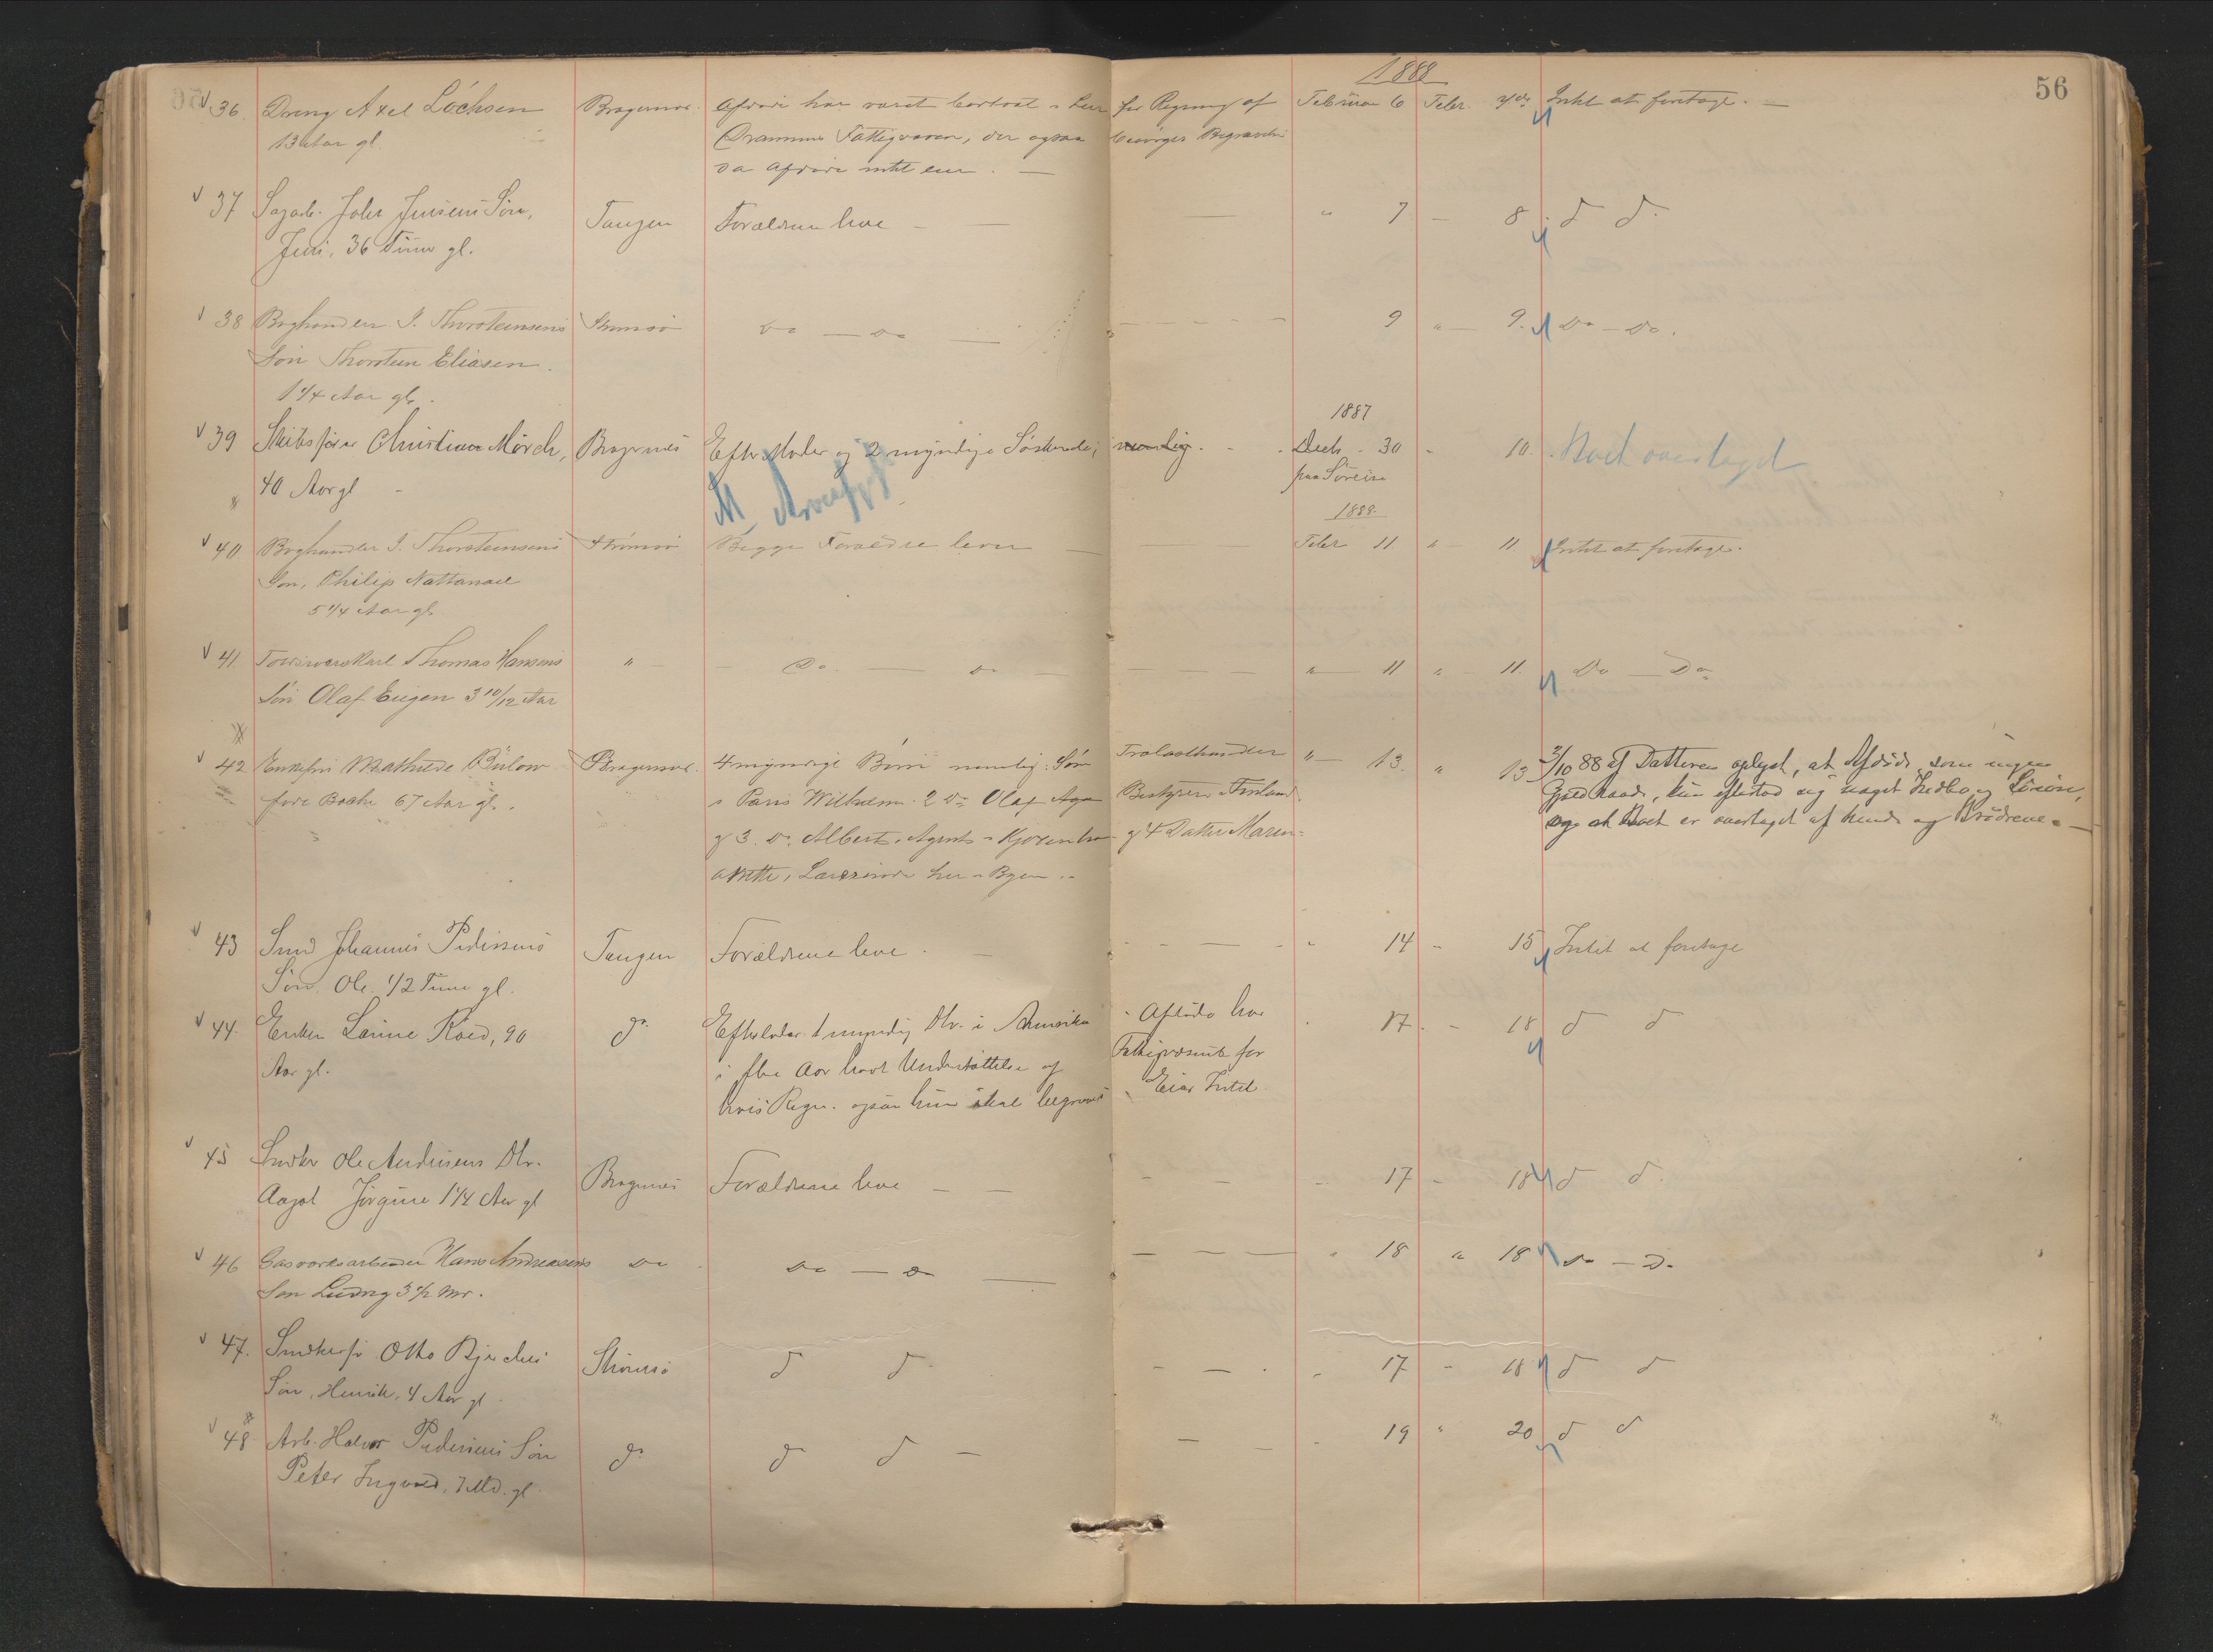 1888
56
36. Dreng Axel Löchsen Bragernæs. Afdøde har været bortsat i Lier for Regning af Februar 6 Febr. Intet at foretage. —
13 Aar gl. Drammens Fattigvæsen, der ogsaa besørger Begravelse
da Afdøde intet eier. —
37 Sagarb. Johs Jensens Søn, Tangen Forældrene leve — — " 7 — 8 d d.
Jens, 36 Timer gl.
38 Boghandler J. Thorsteinsens Strømsø do — do — 9 " — 9. do — do.
Søn Thorstein Eliasen.
1 1/4 Aar gl.
1887
39 Skibsfører Christian Mørch, Bragernæs Efterl. Moder og 2 myndige Søskende, nemlig. Decb. 30 - 10. Boet overtaget
40 Aar gl - paa Søreise
1888.
40 Boghandler J. Thorsteinsens Strømsø Begge Forældre lever — Febr 11 " — 11 Intet at foretage.
Søn, Philip Nattanael
5 1/4 Aar gl.
41. Thomas Hansens " — do. — do — " — 11 " — 11. do — do
Søn Olaf Eugen 3 10/12 Aar
42 Enkefru Mathilde Bülow Bragernæs. 4 myndige Børn nemlig: Søn Trælasthandler " — 13. " 13 2/10 88 af Datteren oplyst, at Afdøde, som ingen
født Bache 67 Aar gl. i Paris Wilhelm. 2 do Olaf Aage Bestyrer i Finland Gjæld havde, kun efterlod sig noget Indbo og
og 3. do. Albert, Agent i Kjøbenhavn og 4 Datter Maren og at Boet er overtaget af hende og Brödrene. —
Lærerinde her i Byen.
43 Smed Johannes Pedersens Tangen Forældrene leve. — 14 - 15 Intet at foretage
Søn. Ole. 1/2 Time gl.
44. Enken Larine Roed, 90 do Efterlader 1 myndig Dtr. i Amerika - Afdøde har 17. - 18 d d
Aar gl. i flere Aar havt Understøttelse af Fattigvæsenet for
hvis Regn. ogsaa hun skal begraves. Eier Intet
45 Ole Andersens Dtr. Bragernæs Forældrene leve — — 17 - 18 d d.
Aagot Jørgine 1 1/4 Aar gl
46 Gasværksarbeider Hans Andreasens do do — do — " 18 " 18 do — do
Søn Ludvig 3 1/2 Md.
47. Otto Strømsø d d. — 17 - 18 d d
Søn, Henrik, 4 Aar gl
48 Arb. Halvor Pedersens Søn do d d — 19 " 20 d d
Peter Ingvald, 7 Md. gl